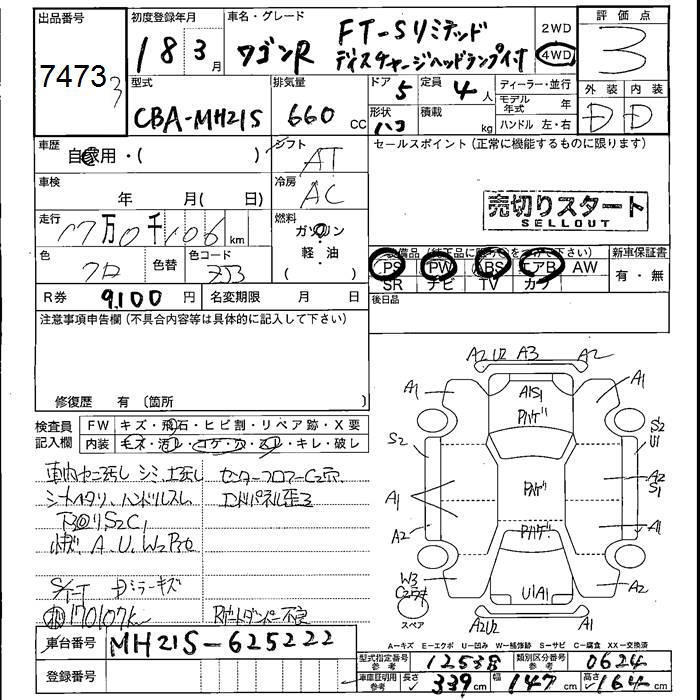 出品番号 初度登録年月 車名・グレード 評価点
7473 3 18 3月 ワゴンR FT-Sリミテッド 2WD 3
ディスチャージヘッドランプ付 4WD
型式 排気量 ドア 5 定員 4人 ディーラー・並行 外装 内装
モデル年式 年
CBA-MH21S 660 CC 形状 ハコ 積載 kg ハンドル 左・右 D D
車歴 自家用・( ) シフト AT セールスポイント(正常に機能するものに限ります)
車検 年 月( 日) 冷房 AC
売切りスタート
SELLOUT
走行 17万0千106km 燃料 ガソリン・軽・油 ( )
色 クロ 色替 色コード ZJ3
装備品(純正品に限り○をつけて下さい) 新車保証書
PS PW ABS エアB AW 有・無
SR ナビ TV カワ
R券 9,100円 名変期限 月 日 後日品
注意事項申告欄(不具合内容等は具体的に記入して下さい)
修復歴 有 〔箇所
検査員記入欄 FW キズ・飛石・ヒビ割・リペア跡・X要
内装 モネ・汚レ・コゲ・穴・スレ・キレ・破レ
シートヘタリ、ハンドルスレ
下回りS2C1
小キズ A.U.W2 P有
ドミラーキズ
170107km Rゲートダンパー不良
センターフロアーC2穴
エンドパネル歪ミ
A2 U2 A3 A2
A1 A1S1 A1
Pハゲ
S2 S2 U1
Pハゲ A2 S1
A1
A2 Pハゲ A1
W3 U1A1 A2
スペア
A2U2 A1
A=キズ E=エクボ U=凹み W=補修跡 S=サビ C=腐食 XX=交換済
車台番号 MH21S-625222
登録番号
型式指定番号 参考 12538 類別区分番号 参考 0624
車庫証明用 参考 長さ 339cm 幅 147cm 高さ 164cm